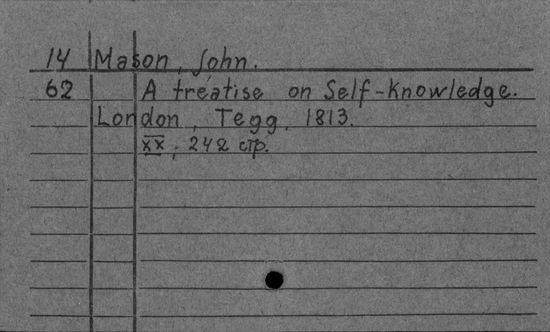 14 Mason, John.
62 A treatise on Self-Knowledge.
London, Tegg, 1813.
XX, 242 стр.